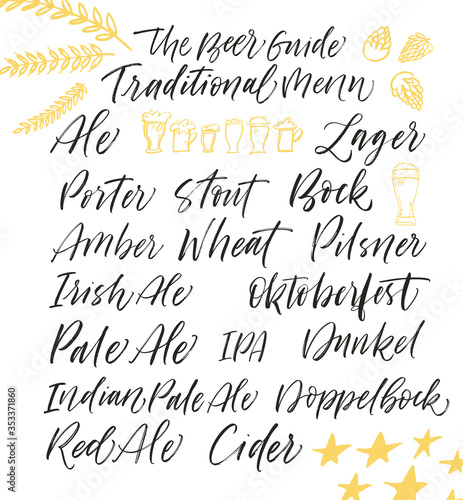 The Beer Guide
Traditional Menu
Ale Lager
Porter Stout Bock
Amber Wheat Pilsner
Irish Ale Oktoberfest
Pale Ale IPA Dunkel
Indian Pale Ale Doppelbock
Red Ale Cider
Adobe Stock | #353371860